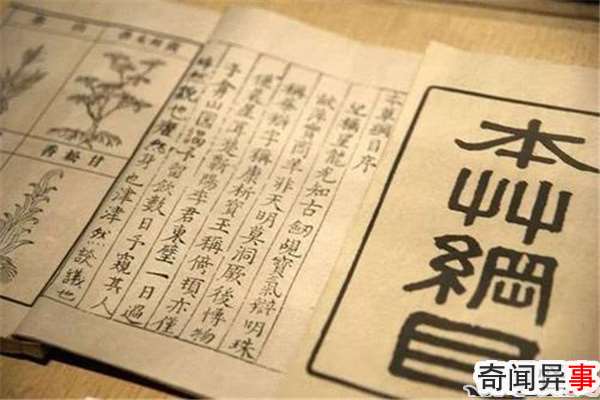 本艸綱目
本草綱目序
紀稱望龍光知古劒覘寶氣辯明珠
故萍實商羊非天明莫洞厥後博物
稱華辯字稱康析寶玉稱倚頓亦僅
僅晨星耳楚蘄陽李君東璧一日過
予弇山園謁予留飲數日予窺其人
睟然貌也癯然身也津津然談議也
奇闻异事